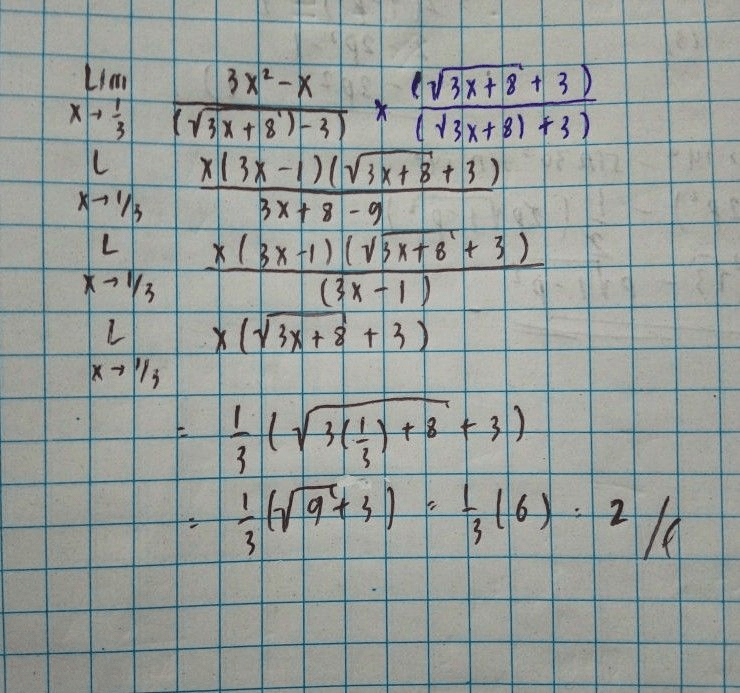 Lim x→1/3 3x² - x / (√3x + 8) - 3) × (√3x + 8 + 3) / (√3x+8) + 3)
L x→1/3 x(3x - 1)(√3x + 8 + 3) / 3x + 8 - 9
L x→1/3 x(3x-1)(√3x+8 + 3) / (3x - 1)
L x→1/3 x(√3x + 8 + 3)
= 1/3 (√3(1/3) + 8 + 3)
= 1/3 (√9 + 3) = 1/3 (6) = 2 //